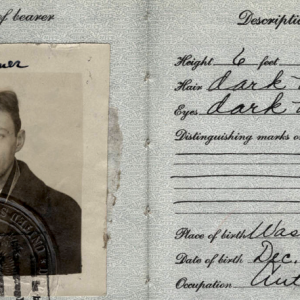 of bearer
Description
Height 6 feet
Hair dark
Eyes dark
Distinguishing marks o
Place of birth Was
Date of birth Dec.
Occupation